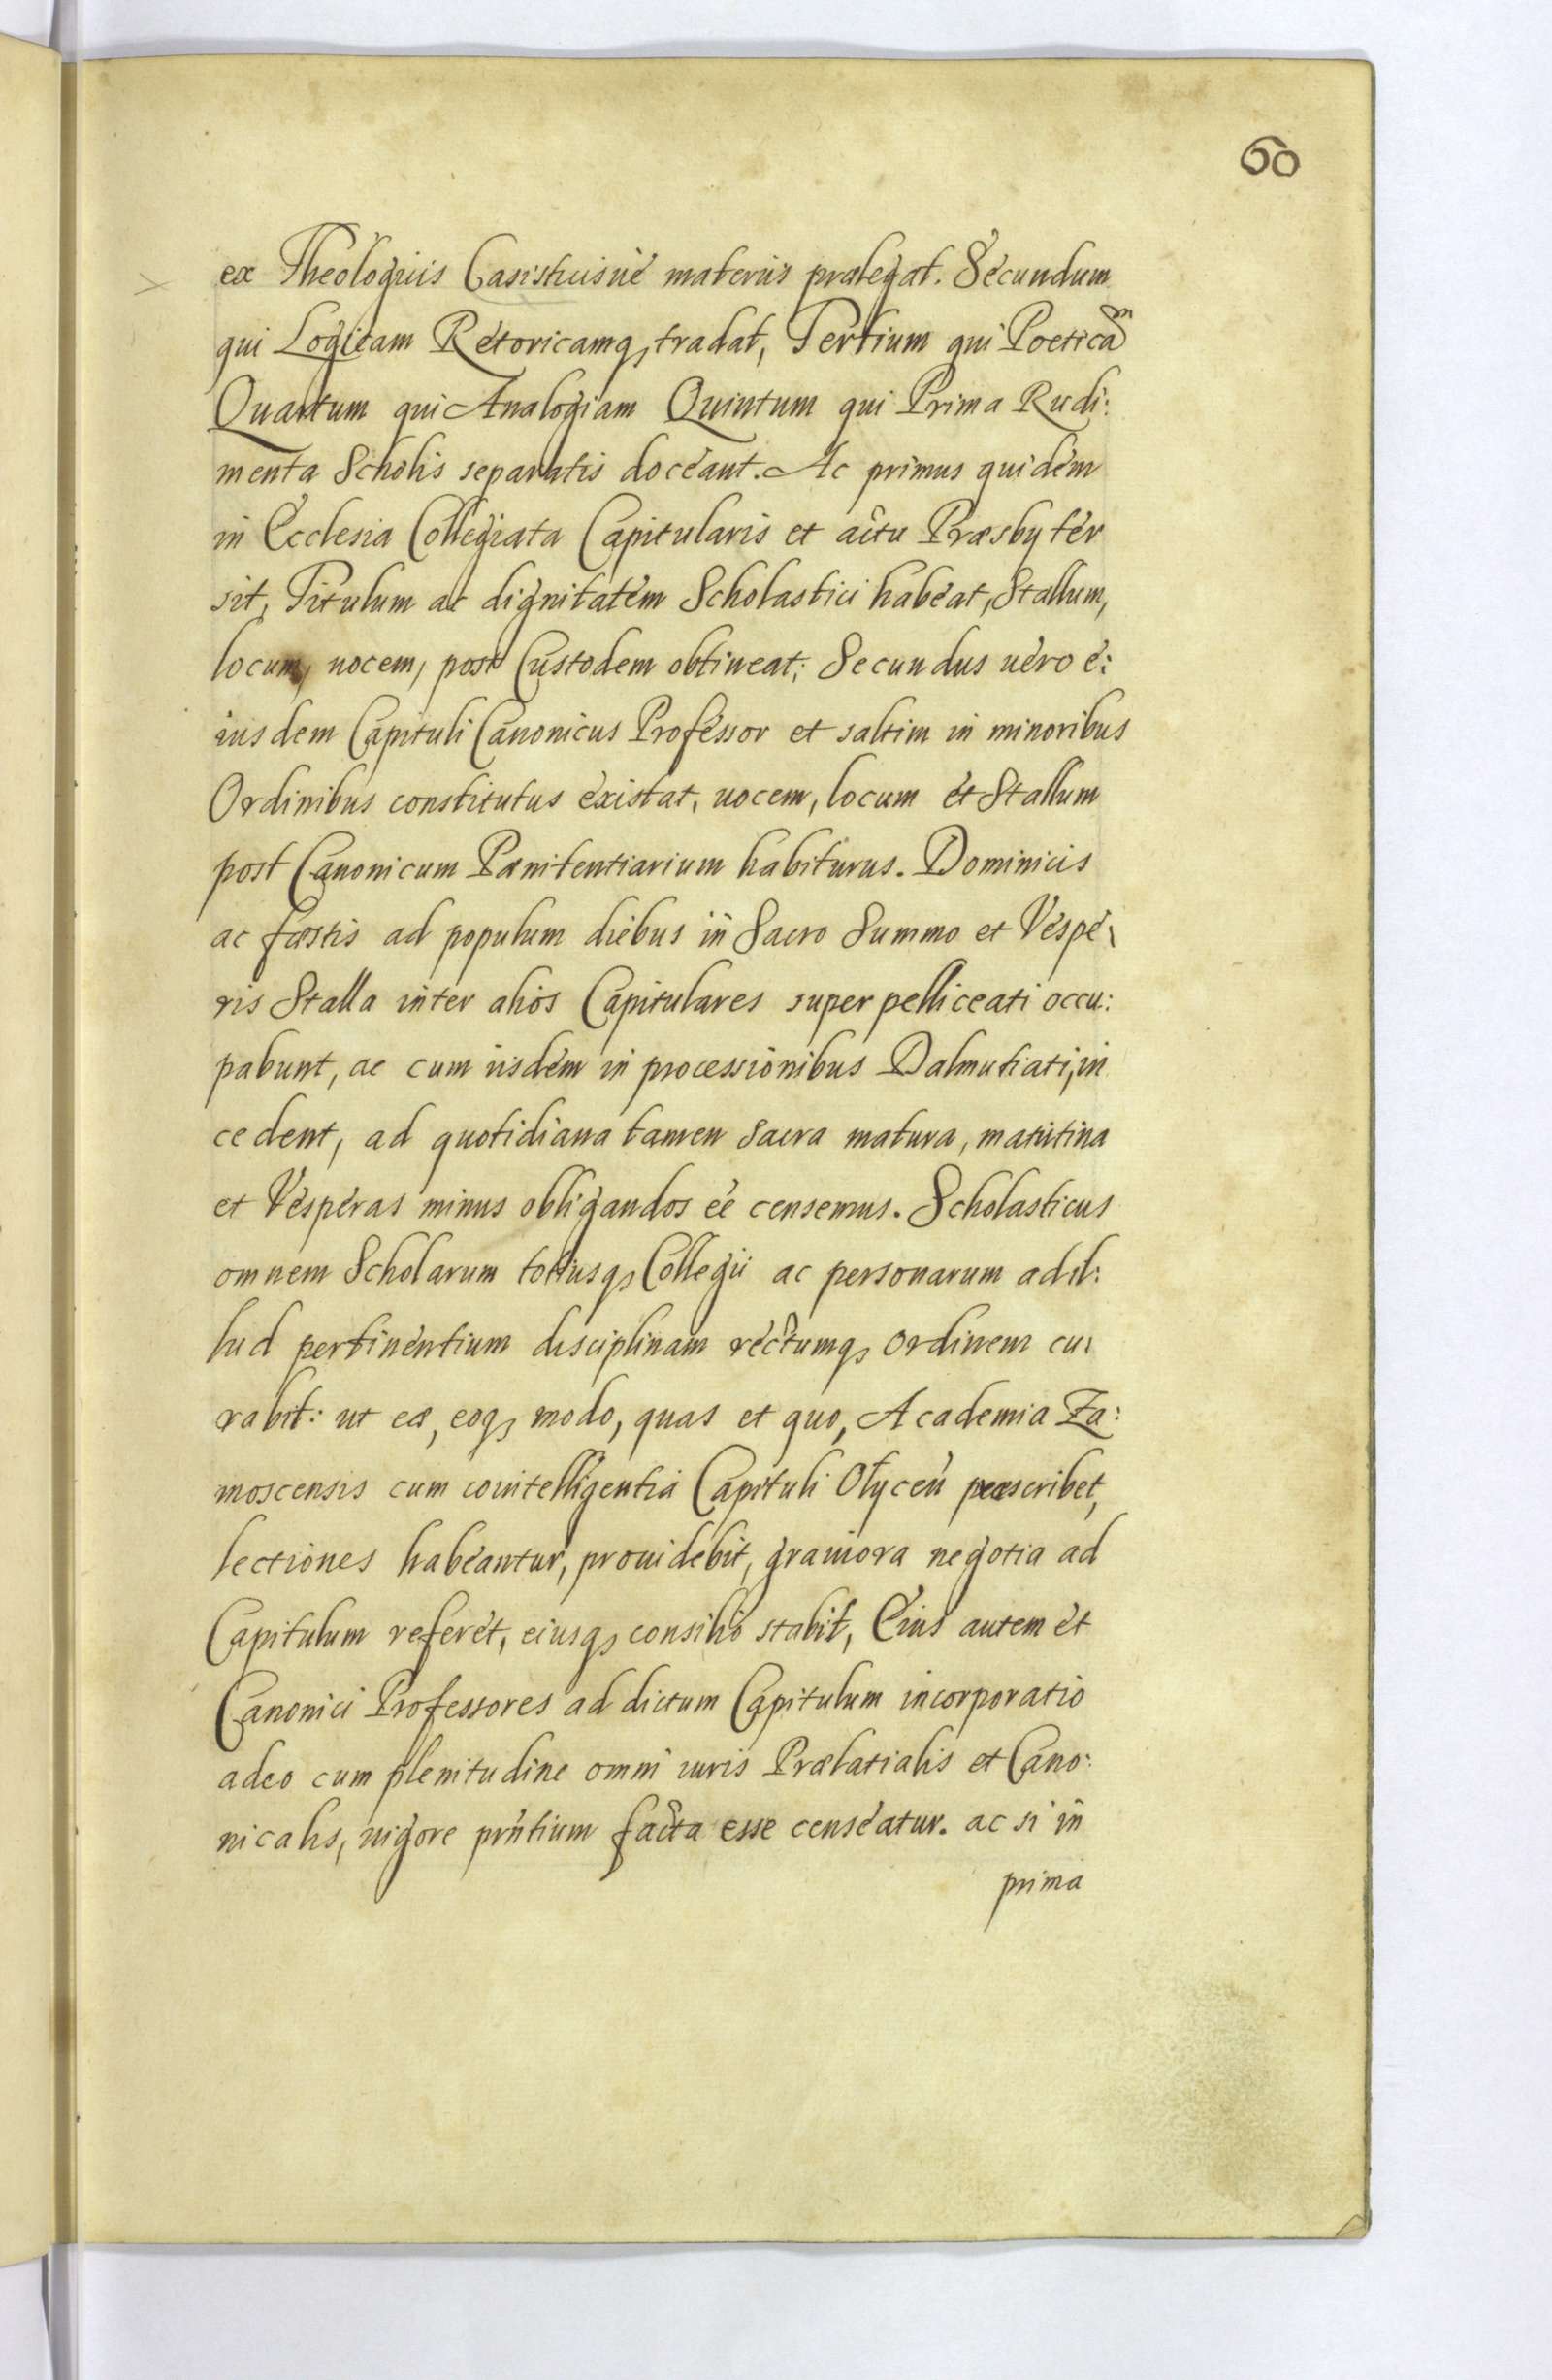 60
ex Theologicis Casisticisuè materiis prælegat. Secundum
qui Logicam Retoricamq, tradat, Tertium qui Poeticam
Quartum qui Analogiam Quintum qui Prima Rudi:
menta Scholis separatis doceant. Ac primus quidem
in Ecclesia Collegiata Capitularis et actu Præsbyter
sit, Titulum ac dignitatem Scholastici habeat, Stallum,
locum, uocem, post Custodem obtineat; Secundus uero e:
iusdem Capituli Canonicus Professor et saltim in minoribus
Ordinibus constitutus existat, uocem, locum et Stallum
post Canonicum Pænitentiarium habiturus. Dominicis
ac fæstis ad populum diebus in Sacro Summo et Vespe:
ris Stalla inter alios Capitulares superpelliceati occu:
pabunt, ac cum iisdem in processionibus Dalmutiati, in
cedent, ad quotidiana tamen Sacra matura, matutina
et Vesperas minus obligandos eé censemus. Scholasticus
omnem Scholarum totiusq, Collegii ac personarum ad il:
lud pertinentium disciplinam rectumq, ordinem cu:
rabit: ut eæ, eoq, modo, quas et quo, Academia Za:
moscensis cum cointelligentia Capituli Olyceñ præscribet,
lectiones habeantur, prouidebit, grauiora negotia ad
Capitulum referet, eiusq, consilio stabit, Eius autem et
Canonici Professores ad dictum Capitulum incorporatio
adeo cum plenitudine omni iuris Prælatialis et Cano:
nicalis, uigore prñtium facta esse censeatur. ac si in
prima